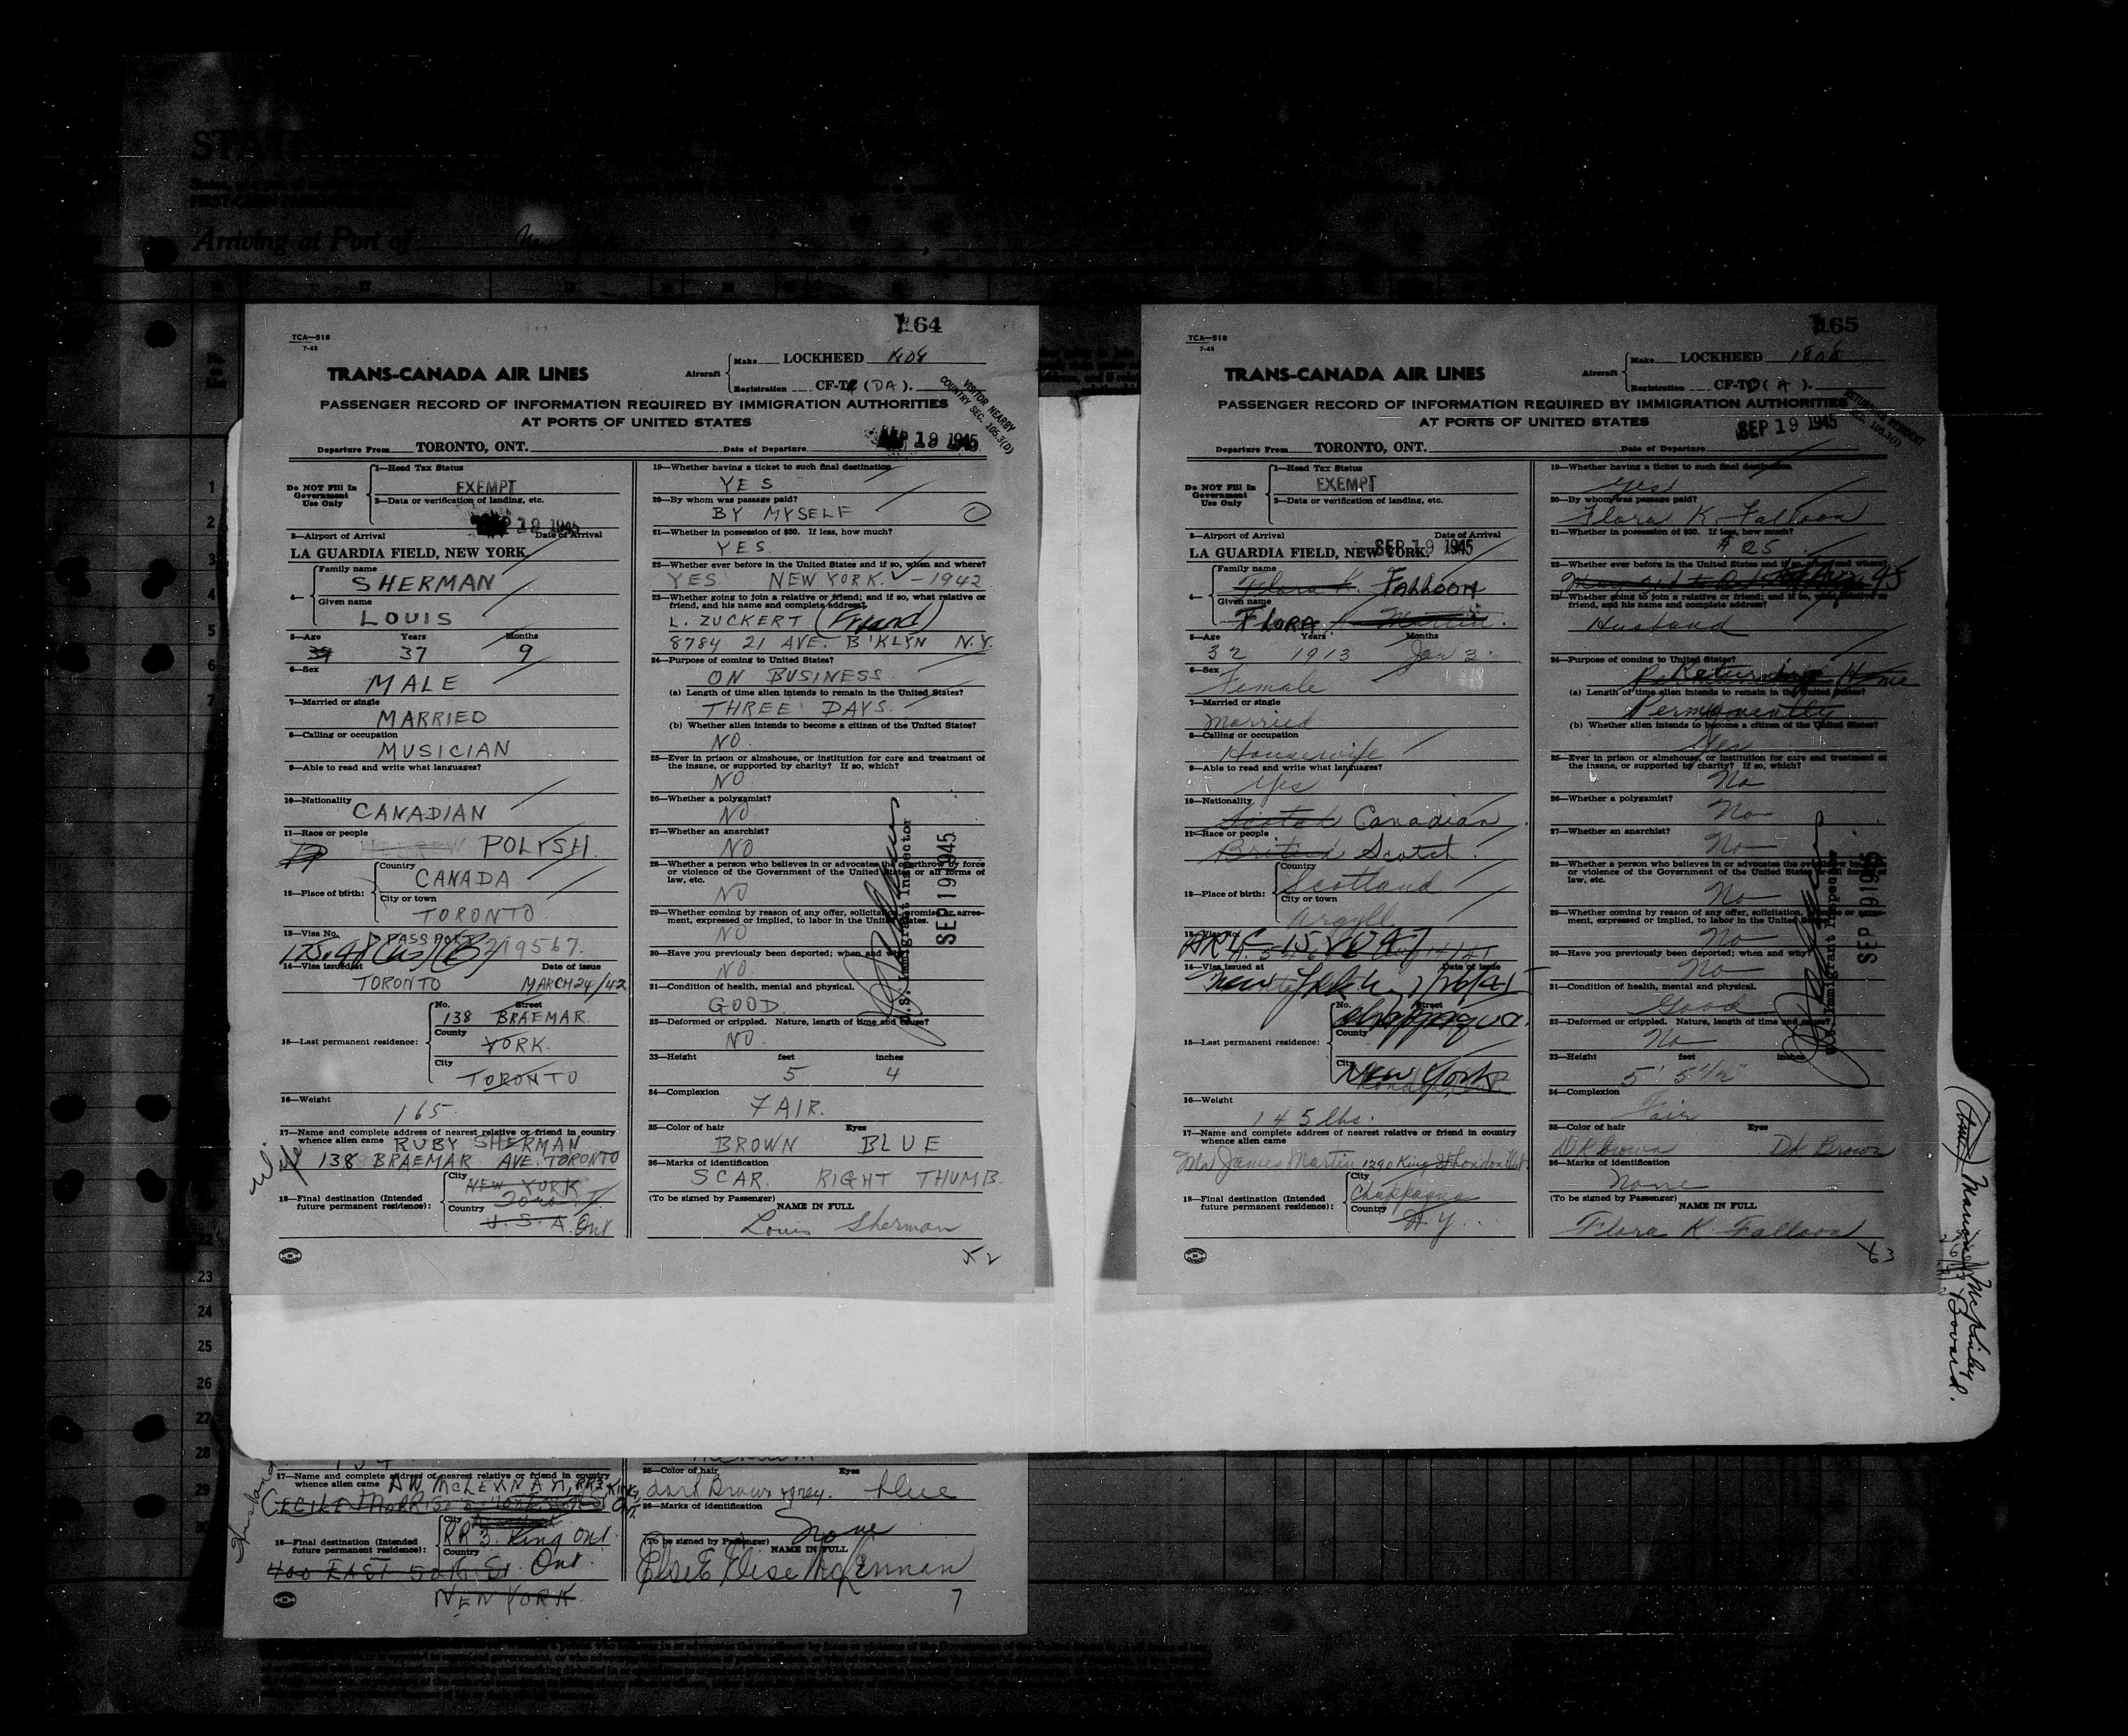 Arriving at Port of
164
TCA—518
7-45
TRANS-CANADA AIR LINES
Aircraft
Make LOCKHEED 1808
Registration CF-T (DA).
VISITOR NEARBY
COUNTRY SEC. 105.3(D)
PASSENGER RECORD OF INFORMATION REQUIRED BY IMMIGRATION AUTHORITIES
AT PORTS OF UNITED STATES
Departure From TORONTO, ONT. Date of Departure SEP 19 1945
Do NOT Fill In
Government
Use Only
1—Head Tax Status
EXEMPT
2—Data or verification of landing, etc.
SEP 19 1945
3—Airport of Arrival Date of Arrival
LA GUARDIA FIELD, NEW YORK
4—
Family name
SHERMAN
Given name
LOUIS
5—Age Years Months
39 37 9
6—Sex
MALE
7—Married or single
MARRIED
8—Calling or occupation
MUSICIAN
9—Able to read and write what languages?
10—Nationality
CANADIAN
11—Race or people
HEBREW POLISH.
12—Place of birth:
Country
CANADA
City or town
TORONTO
13—Visa No. PASSPORT
219567.
14—Visa issued at Date of issue
TORONTO MARCH 24/42
15—Last permanent residence:
No. Street
138 BRAEMAR
County
YORK.
City
TORONTO
16—Weight
165
17—Name and complete address of nearest relative or friend in country
whence alien came RUBY SHERMAN
138 BRAEMAR AVE. TORONTO
wife
18—Final destination (Intended
future permanent residence):
City
NEW YORK
Toronto
Country
U.S.A. Ont
19—Whether having a ticket to such final destination
YES
20—By whom was passage paid?
BY MYSELF
21—Whether in possession of $50. If less, how much?
YES
22—Whether ever before in the United States and if so, when and where?
YES. NEW YORK. – 1942
23—Whether going to join a relative or friend; and if so, what relative or
friend, and his name and complete address.
L. ZUCKERT (Friend)
8784 21 AVE. B'KLYN N.Y.
24—Purpose of coming to United States?
ON BUSINESS
(a) Length of time alien intends to remain in the United States?
THREE DAYS.
(b) Whether alien intends to become a citizen of the United States?
NO.
25—Ever in prison or almshouse, or institution for care and treatment of
the insane, or supported by charity? If so, which?
NO
26—Whether a polygamist?
NO
27—Whether an anarchist?
NO
28—Whether a person who believes in or advocates the overthrow by force
or violence of the Government of the United States or all forms of
law, etc.
NO
29—Whether coming by reason of any offer, solicitation, promise or agree-
ment, expressed or implied, to labor in the United States.
NO
30—Have you previously been deported; when and why?
NO.
31—Condition of health, mental and physical.
GOOD.
32—Deformed or crippled. Nature, length of time and cause?
NO.
33—Height feet inches
5 4
34—Complexion
FAIR.
35—Color of hair Eyes
BROWN BLUE
36—Marks of identification
SCAR. RIGHT THUMB.
(To be signed by Passenger)
NAME IN FULL
Louis Sherman
U.S. Immigrant Inspector
SEP 19 1945
165
TCA—518
7-45
TRANS-CANADA AIR LINES
Aircraft
Make LOCKHEED 1808
Registration CF-TC( A ).
RETURNING RESIDENT
SEC. 105.3(1)
PASSENGER RECORD OF INFORMATION REQUIRED BY IMMIGRATION AUTHORITIES
AT PORTS OF UNITED STATES
Departure From TORONTO, ONT. Date of Departure SEP 19 1945
Do NOT Fill In
Government
Use Only
1—Head Tax Status
EXEMPT
2—Data or verification of landing, etc.
3—Airport of Arrival Date of Arrival
LA GUARDIA FIELD, NEW YORK. SEP 19 1945
4—
Family name
Flora K FALLOON
Given name
FLORA K Martin.
5—Age Years Months
32 1913 Jan 3.
6—Sex
Female
7—Married or single
Married
8—Calling or occupation
Housewife
9—Able to read and write what languages?
Yes
10—Nationality
Scotch Canadian
11—Race or people
British Scotch.
12—Place of birth:
Country
Scotland
City or town
Argyll
13—Visa No.
14—Visa issued at Date of issue
New York
15—Last permanent residence:
No. Street
Chappaqua.
County
City
New York
16—Weight
145 lbs.
17—Name and complete address of nearest relative or friend in country
whence alien came
Mr James Martin 1290 King St London Ont.
18—Final destination (Intended
future permanent residence):
City
Chappaqua
Country
N.Y.
19—Whether having a ticket to such final destination
Yes
20—By whom was passage paid?
Flora K. Falloon
21—Whether in possession of $50. If less, how much?
$ 25
22—Whether ever before in the United States and if so, when and where?
23—Whether going to join a relative or friend; and if so, what relative or
friend, and his name and complete address?
Husband
24—Purpose of coming to United States?
Returning Home
(a) Length of time alien intends to remain in the United States?
Permanently
(b) Whether alien intends to become a citizen of the United States?
Yes
25—Ever in prison or almshouse, or institution for care and treatment of
the insane, or supported by charity? If so, which?
No
26—Whether a polygamist?
No
27—Whether an anarchist?
No
28—Whether a person who believes in or advocates the overthrow by force
or violence of the Government of the United States or all forms of
law, etc.
No
29—Whether coming by reason of any offer, solicitation, promise or agree-
ment, expressed or implied, to labor in the United States.
No
30—Have you previously been deported; when and why?
No
31—Condition of health, mental and physical.
Good
32—Deformed or crippled. Nature, length of time and cause?
No
33—Height feet inches
5' 5 1/2"
34—Complexion
Fair
35—Color of hair Eyes
DK Brown Dk Brown
36—Marks of identification
None
(To be signed by Passenger)
NAME IN FULL
Flora K. Falloon
63
U.S. Immigrant Inspector
SEP 19 1945
(Aunt)
17—Name and complete address of nearest relative or friend in country
whence alien came
RR3 KING,
18—Final destination (Intended
future permanent residence):
City
RR 3. King Ont.
Country
Ont.
400 EAST 52th St
NEW YORK
35—Color of hair Eyes
dark Brown & grey. blue
36—Marks of identification
None
(To be signed by Passenger)
NAME IN FULL
7
1
2
3
4
5
6
7
23
24
25
26
27
28
29